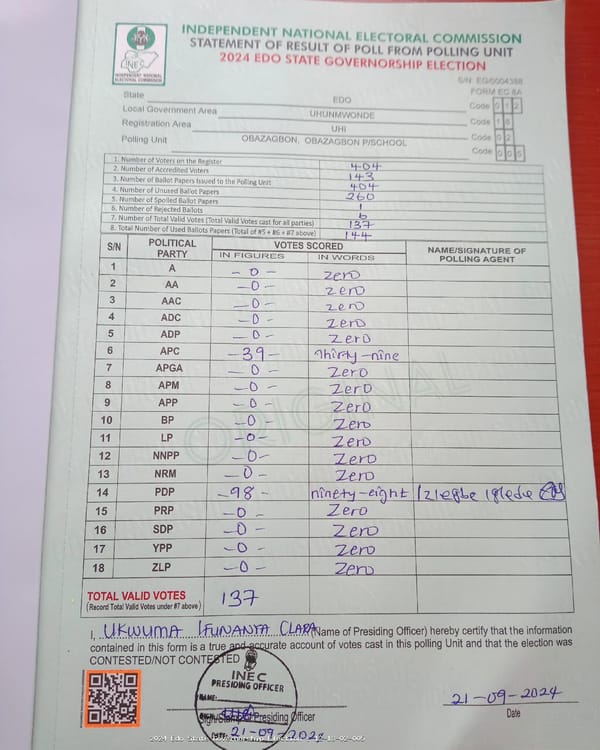 INDEPENDENT NATIONAL ELECTORAL COMMISSION
STATEMENT OF RESULT OF POLL FROM POLLING UNIT
2024 EDO STATE GOVERNORSHIP ELECTION
INEC
INDEPENDENT NATIONAL ELECTORAL COMMISSION
S/N: EG/0004388
FORM EC 8A
State EDO Code 0 1 2
Local Government Area UHUNMWONDE Code 1 8
Registration Area UHI Code 0 2
Polling Unit OBAZAGBON, OBAZAGBON P/SCHOOL Code 0 0 5
1. Number of Voters on the Register 404
2. Number of Accredited Voters 143
3. Number of Ballot Papers Issued to the Polling Unit 404
4. Number of Unused Ballot Papers 260
5. Number of Spoiled Ballot Papers 1
6. Number of Rejected Ballots 6
7. Number of Total Valid Votes (Total Valid Votes cast for all parties) 137
8. Total Number of Used Ballots Papers (Total of #5 + #6 + #7 above) 144
S/N POLITICAL PARTY VOTES SCORED NAME/SIGNATURE OF POLLING AGENT
IN FIGURES IN WORDS
1 A -0- zero
2 AA -0- zero
3 AAC -0- zero
4 ADC -0- zero
5 ADP -0- zero
6 APC -39- Thirty-nine
7 APGA -0- zero
8 APM -0- zero
9 APP -0- zero
10 BP -0- zero
11 LP -0- zero
12 NNPP -0- zero
13 NRM -0- zero
14 PDP -98- ninety-eight Izlegbe Igledie
15 PRP -0- zero
16 SDP -0- zero
17 YPP -0- zero
18 ZLP -0- zero
ORIGINAL
TOTAL VALID VOTES 137
(Record Total Valid Votes under #7 above)
I, UKWUMA IFUNANYA CLARA (Name of Presiding Officer) hereby certify that the information
contained in this form is a true and accurate account of votes cast in this polling Unit and that the election was
CONTESTED/NOT CONTESTED
INEC
PRESIDING OFFICER
NAME:
Sign/Stamp of Presiding Officer
DATE: 21-09-2024
21-09-2024
Date